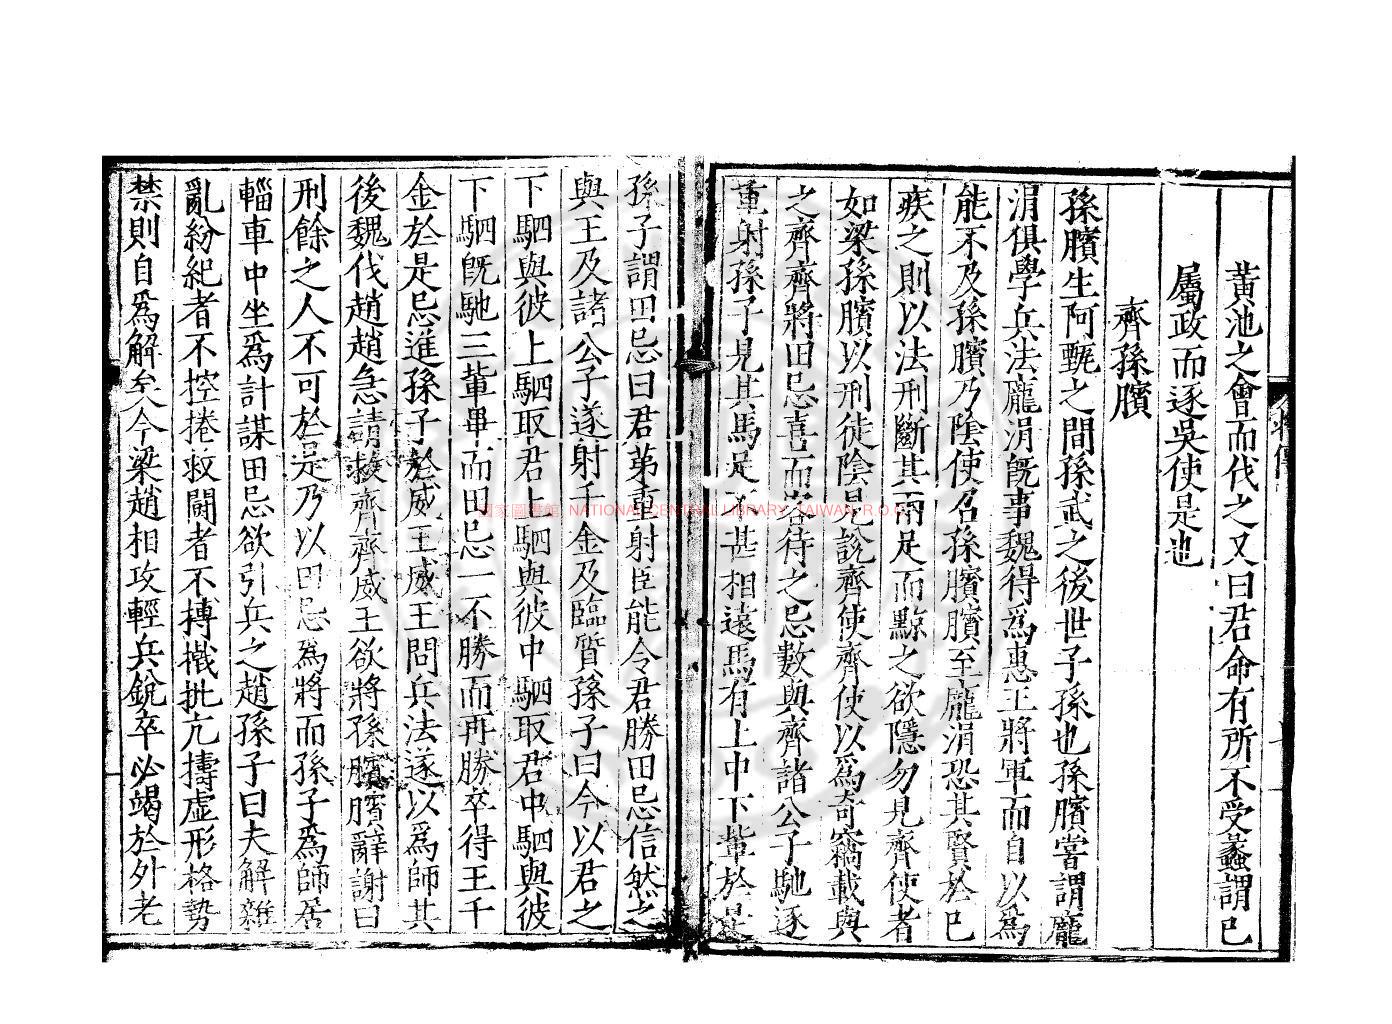 黃池之會而代之又曰君命有所不受蠡謂已
屬政而逐吳使是也
齊孫臏
孫臏生阿甄之間孫武之後世子孫也孫臏嘗謂龐
涓俱學兵法龐涓旣事魏得爲惠王將軍而自以爲
能不及孫臏乃陰使召孫臏臏至龐涓恐其賢於已
疾之則以法刑斷其兩足而黥之欲隱勿見齊使者
如梁孫臏以刑徒陰見說齊使齊使以爲奇竊載與
之齊齊將田忌喜而客待之忌數與齊諸公子馳逐
重射孫子見其馬足不甚相遠馬有上中下輩於是
孫子謂田忌曰君苐重射臣能令君勝田忌信然之
與王及諸公子遂射千金及臨質孫子曰今以君之
下駟與彼上駟取君上駟與彼中駟取君中駟與彼
下駟旣馳三輩畢而田忌一不勝而再勝卒得王千
金於是忌進孫子於威王威王問兵法遂以爲師其
後魏伐趙趙急請救齊齊威王欲將孫臏臏辭謝曰
刑餘之人不可於是乃以田忌爲將而孫子爲師居
輜車中坐爲計謀田忌欲引兵之趙孫子曰夫解雜
亂紛紀者不控捲救鬪者不搏撠批亢擣虛形格勢
禁則自爲解矣今梁趙相攻輕兵銳卒必竭於外老
國家圖書館 NATIONAL CENTRAL LIBRARY, TAIWAN, R.O.C.